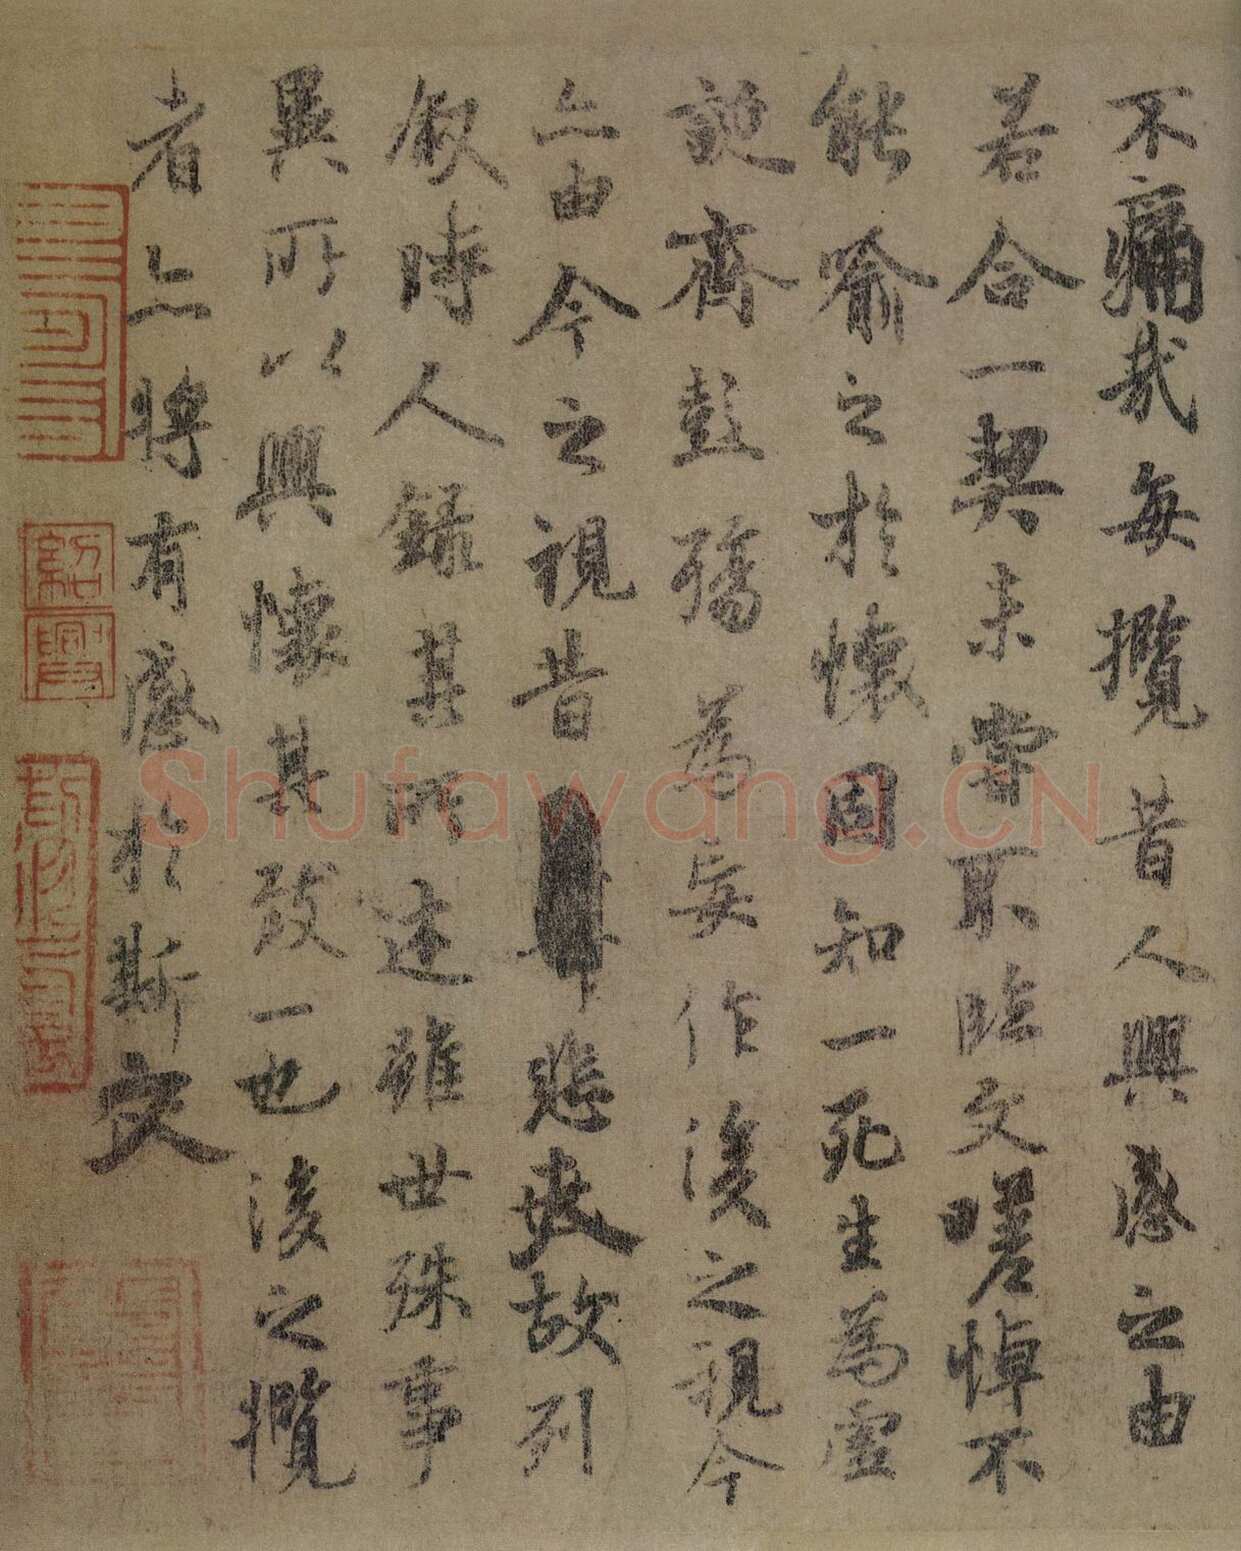 不痛哉每攬昔人興感之由
若合一契未嘗不臨文嗟悼不
能喻之於懷固知一死生為虛
誕齊彭殤為妄作後之視今
亦由今之視昔悲夫故列
敘時人錄其所述雖世殊事
異所以興懷其致一也後之攬
者亦將有感於斯文
紹興
Shufawang.CN